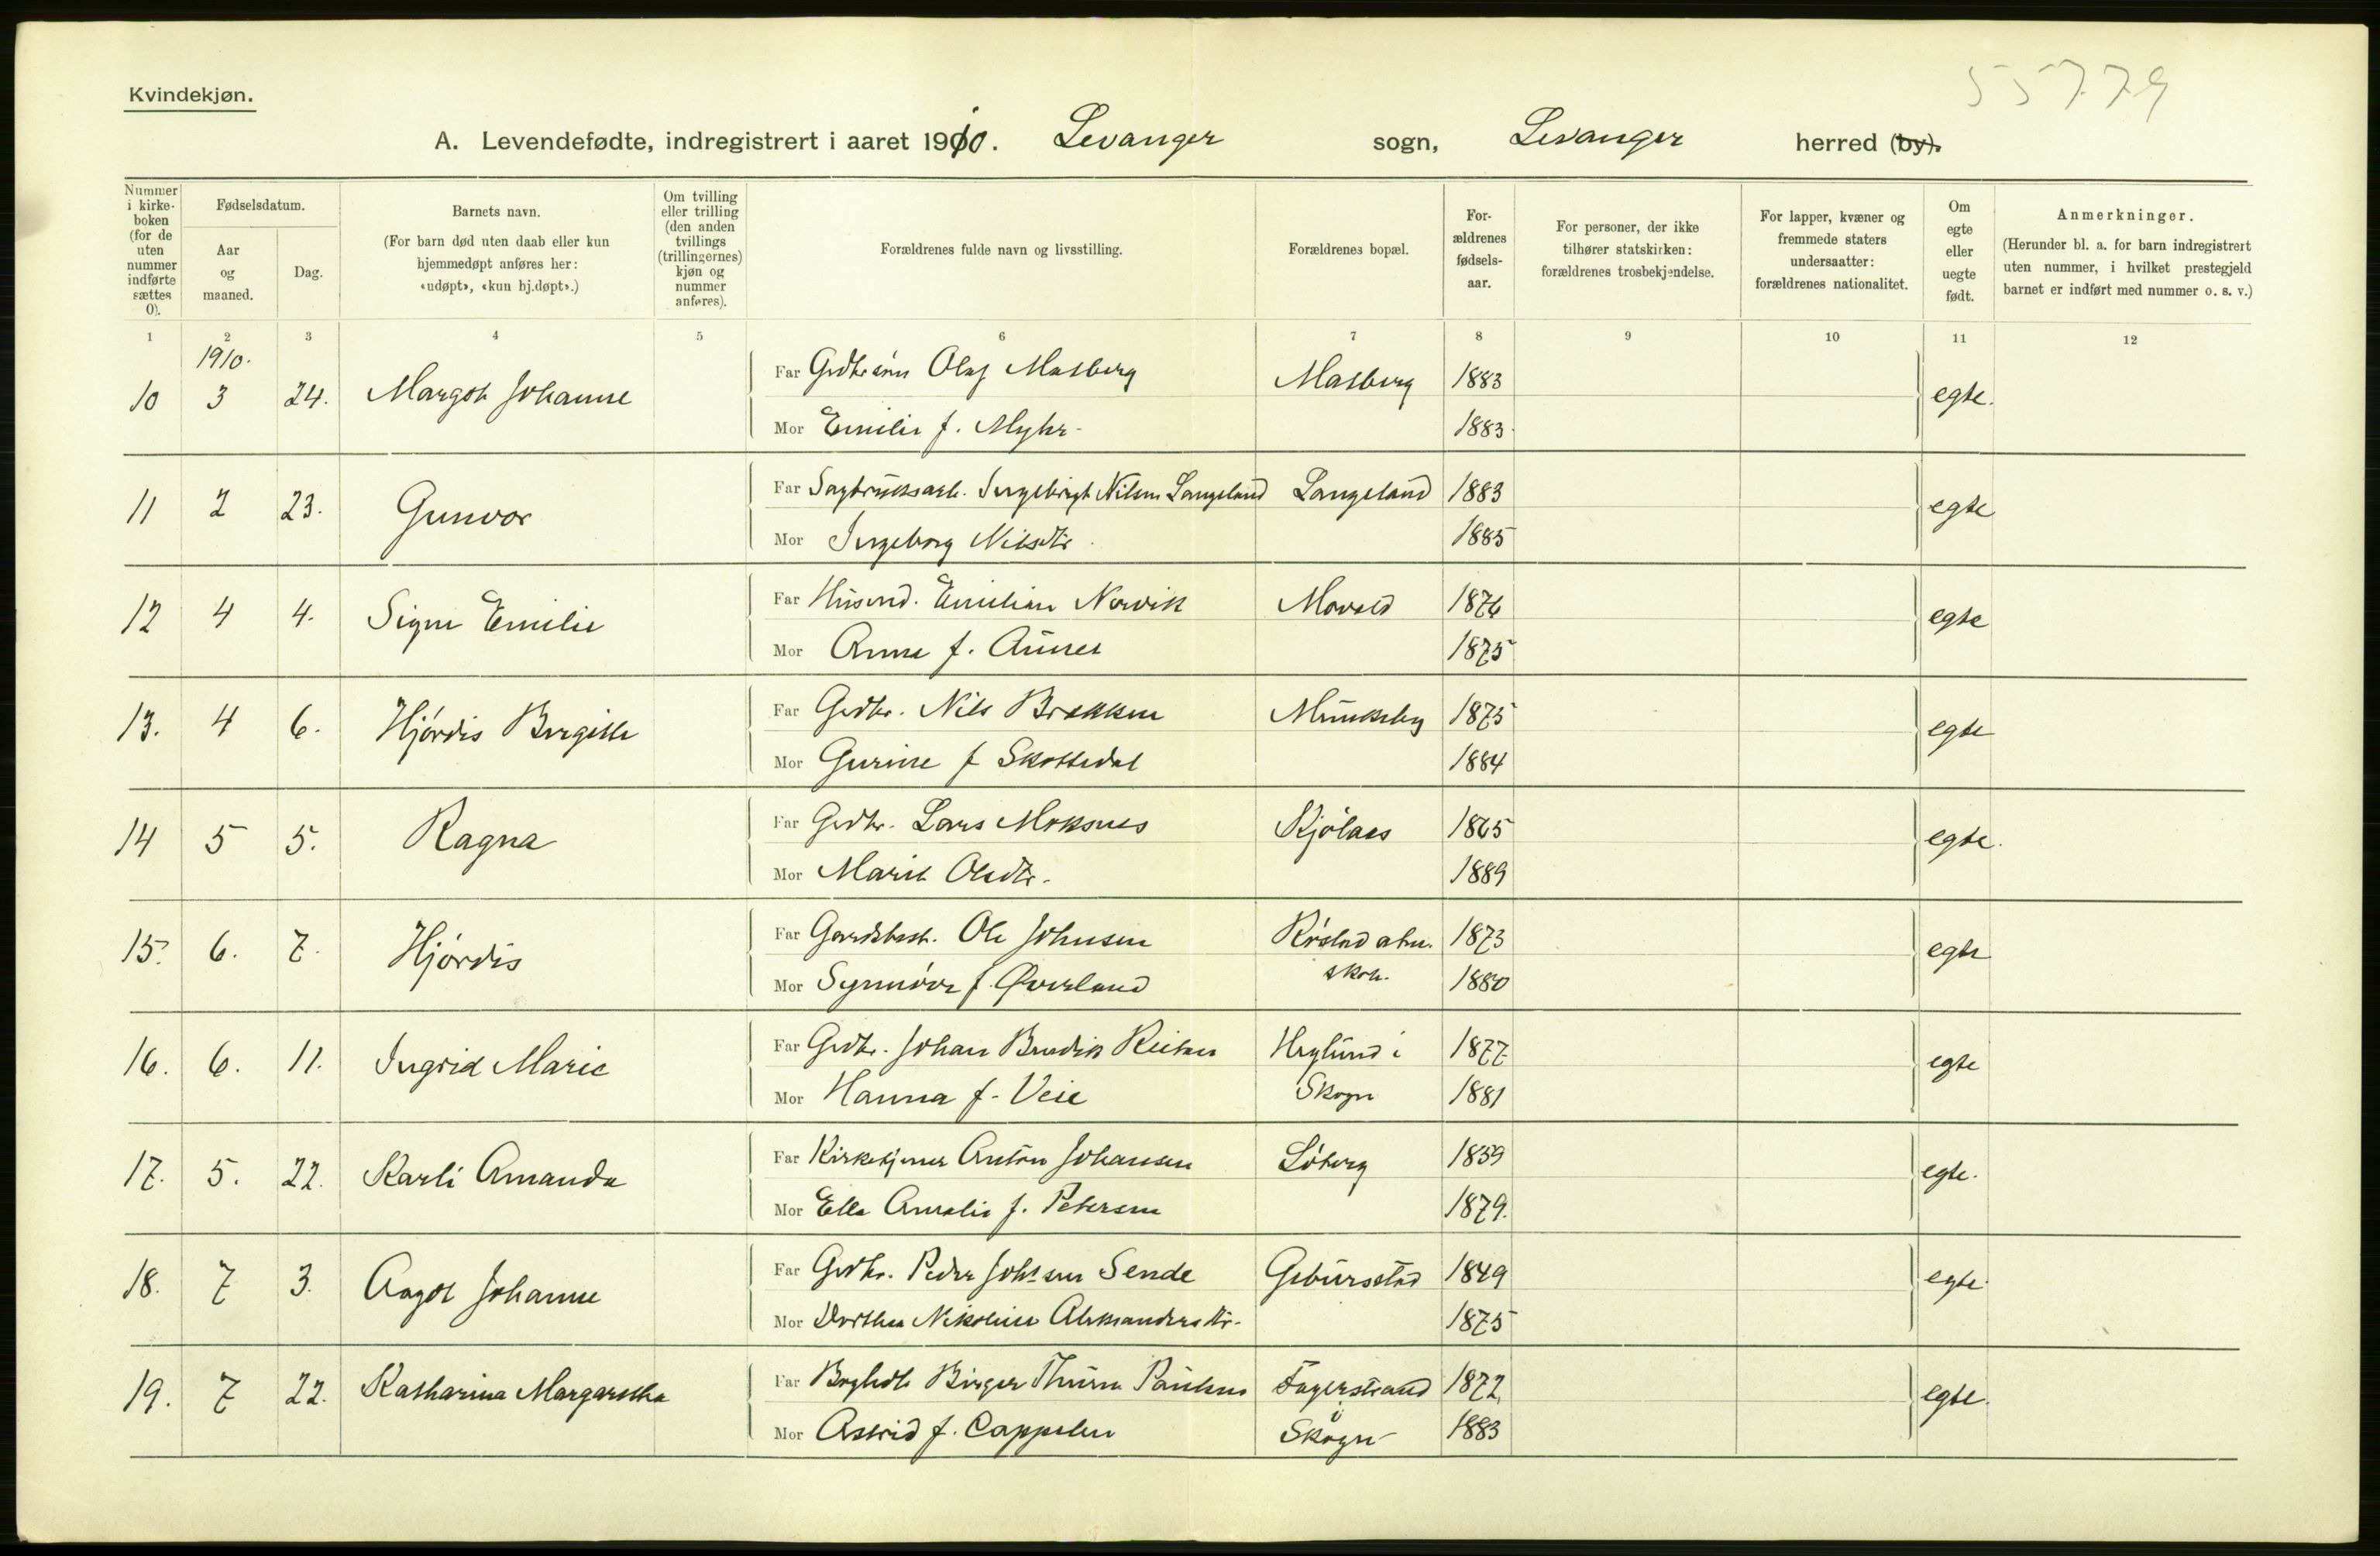 55779
Kvindekjøn.
A. Levendefødte, indregistrert i aaret 1910. Levanger sogn, Levanger herred (by).
Nummer i kirke-boken (for de uten nummer indførte sættes 0).
Fødselsdatum.
Aar og maaned.
Dag.
Barnets navn.
(For barn død uten daab eller kun hjemmedøpt anføres her: «udøpt», «kun hj.døpt».)
Om tvilling eller trilling (den anden tvillings (trillingernes) kjøn og nummer anføres).
Forældrenes fulde navn og livsstilling.
Forældrenes bopæl.
For-ældrenes fødsels-aar.
For personer, der ikke tilhører statskirken: forældrenes trosbekjendelse.
For lapper, kvæner og fremmede staters undersaatter: forældrenes nationalitet.
Om egte eller uegte født.
Anmerkninger.
(Herunder bl. a. for barn indregistrert uten nummer, i hvilket prestegjeld barnet er indført med nummer o. s. v.)
1 2 3 4 5 6 7 8 9 10 11 12
1910.
10 3 24. Margot Johanne Far Gdbrsøn Olaf Masberg Masberg 1883 egte.
Mor Emilie f. Myhr 1883
11 2 23. Gunvor Far Sagbruksarb. Ingebrigt Nilsen Langeland Langeland 1883 egte
Mor Ingeborg Nilsdtr. 1885
12 4 4. Signe Emilie Far Husmd. Emilian Norvik 1876 egte
Mor Anna f. Aunet 1875
13. 4 6. Hjørdis Bergitte Far Grdbr. Nils Brekken Munkeby 1875 egte
Mor Gurine f Skottedal 1884
14 5 5. Ragna Far Grdbr. Lars Moksnes Kjølaas 1865 egte.
Mor Marit Olsdtr. 1889
15. 6. 7. Hjørdis Far Gardsbest. Ole Johnsen Røstad abn. 1873 egte
Mor Synnøve f. Øverland skole. 1880
16. 6. 11. Ingrid Marie Far Grdbr. Johan Reitan Heglund i 1877 egte
Mor Hanna f. Veie Skogn 1881
17. 5. 22. Karli Amanda Far Kirketjener Anton Johansen Løberg 1859 egte.
Mor Ella Amalie f. Petersen 1879.
18. 7 3. Aagot Johanne Far Grdbr. Peder Johnsen Sende Geburstad 1849 egte
Mor Dorthea Nikoline Aleksandersdtr. 1875
19. 7 22. Katharina Margaretha Far Boghdl. Birger Thurn Paulsen Fagerstrand 1872 egte.
Mor Astrid f. Cappelen Skogn 1883